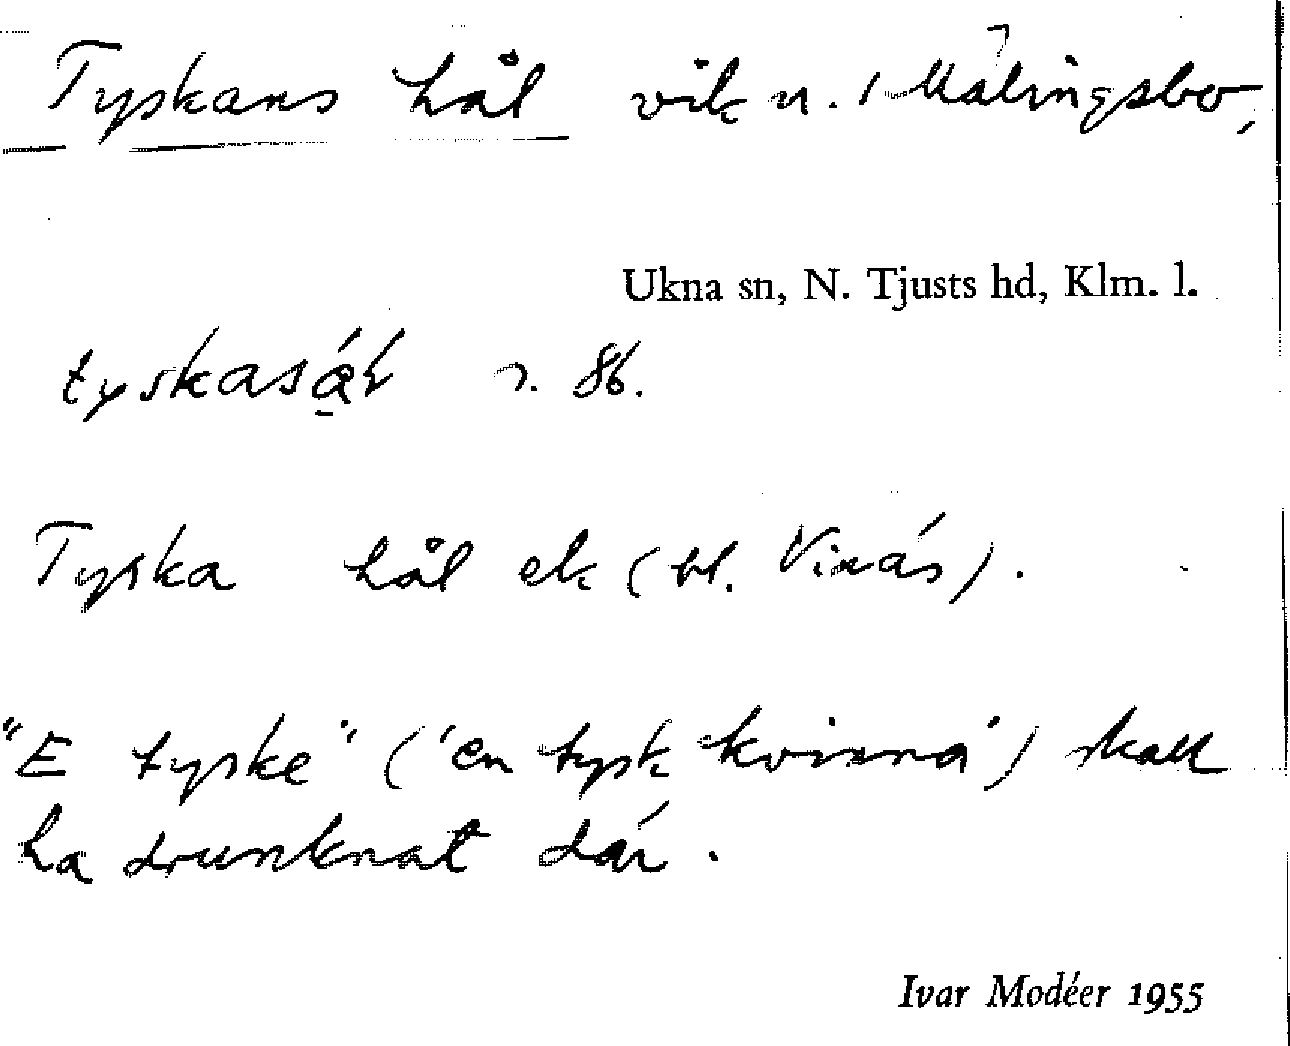 Tyskans hål vik n. Målingsbo,
Ukna sn, N. Tjusts hd, Klm. l.
s. 86.
Tyska hål ek (bl. Vinäs).
"E tyske" ('en tysk kvinna') skall
ha drunknat där.
Ivar Modéer 1955